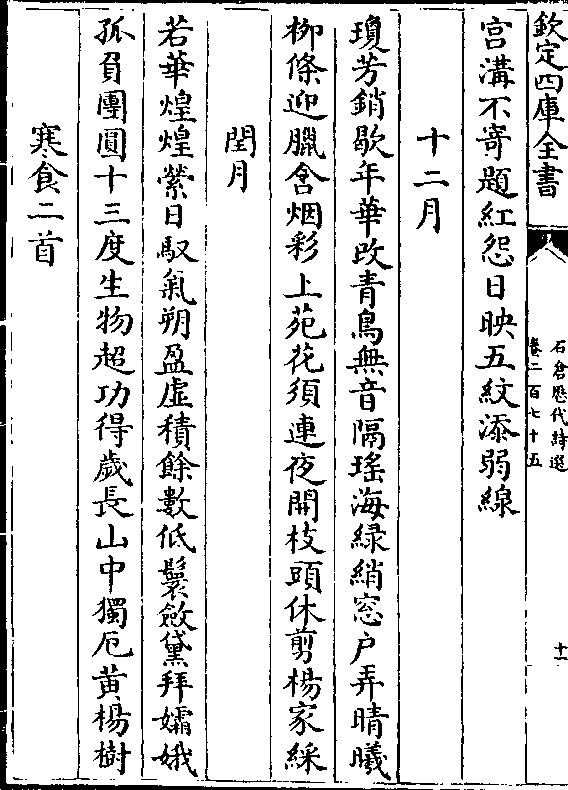 欽定四庫全書
石倉歷代詩選
卷二百七十五
十一
宫溝不寄題紅怨日映五紋添弱線
十二月
瓊芳銷歇年華改青鳥無音隔瑤海緑綃窓户弄晴曦
柳條迎臘含烟彩上苑花須連夜開枝頭休剪楊家綵
閏月
若華煌煌縈日馭氣朔盈虚積餘數低鬟斂黛拜孀娥
孤負團圓十三度生物超功得歲長山中獨厄黄楊樹
寒食二首